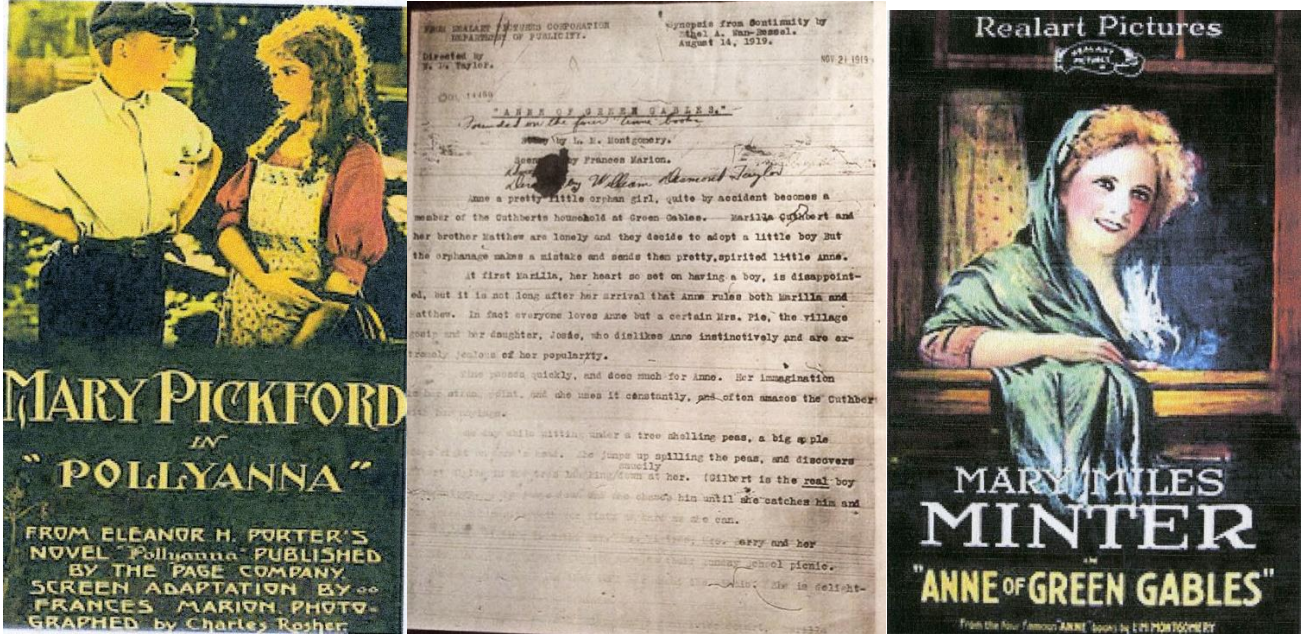 MARY PICKFORD
IN
"POLLYANNA"
FROM ELEANOR H. PORTER'S
NOVEL "Pollyanna" PUBLISHED
BY THE PAGE COMPANY.
SCREEN ADAPTATION BY
FRANCES MARION. PHOTO-
GRAPHED by Charles Rosher.
FROM REALART PICTURES CORPORATION
DEPARTMENT OF PUBLICITY.
Synopsis from Continuity by
Ethel A. Van-Bussel.
August 14, 1919.
Directed by
W. D. Taylor.
NOV 21 1919
"ANNE OF GREEN GABLES."
Founded on the four Anne books
by L. M. Montgomery.
by Frances Marion.
by William Desmond Taylor
Anne a pretty little orphan girl, quite by accident becomes a
member of the Cuthberts household at Green Gables. Marilla Cuthbert and
her brother Matthew are lonely and they decide to adopt a little boy But
the orphanage makes a mistake and sends them pretty,spirited little Anne.
At first Marilla, her heart so set on having a boy, is disappoint-
ed, but it is not long after her arrival that Anne rules both Marilla and
Matthew. In fact everyone loves Anne but a certain Mrs. Pie, the village
gosip and her daughter, Josie, who dislikes Anne instinctively and are ex-
tremely jealous of her popularity.
Time passes quickly, and does much for Anne. Her immagination
is her strong point, and she uses it constantly, and often amazes the Cuthber
with her sayings.
One day while sitting under a tree shelling peas, a big apple
head. She jumps up spilling the peas, and discovers
saucily
looking down at her. (Gilbert is the real boy
him until she catches him and
as she can.
arry and her
school picnic.
She is delight-
Realart Pictures
REALART
PICTURES
MARY MILES
MINTER
IN
"ANNE OF GREEN GABLES"
From the four famous "ANNE" books by L.M. MONTGOMERY